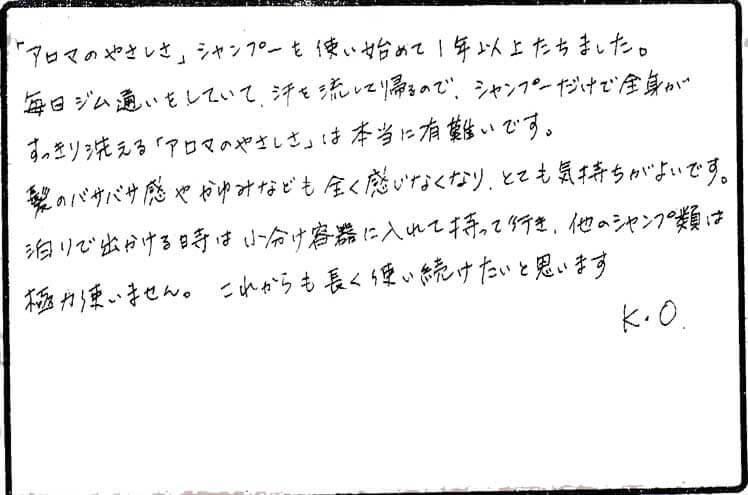 「アロマのやさしさ」シャンプーを使い始めて1年以上たちました。
毎日ジム通いをしていて、汗を流して帰るので、シャンプーだけで全身が
すっきり洗える「アロマのやさしさ」は本当に有難いです。
髪のバサバサ感やかゆみなども全く感じなくなり、とても気持ちがよいです。
泊りで出かける時は小分け容器に入れて持って行き、他のシャンプ類は
極力使いません。これからも長く使い続けたいと思います
K.O.